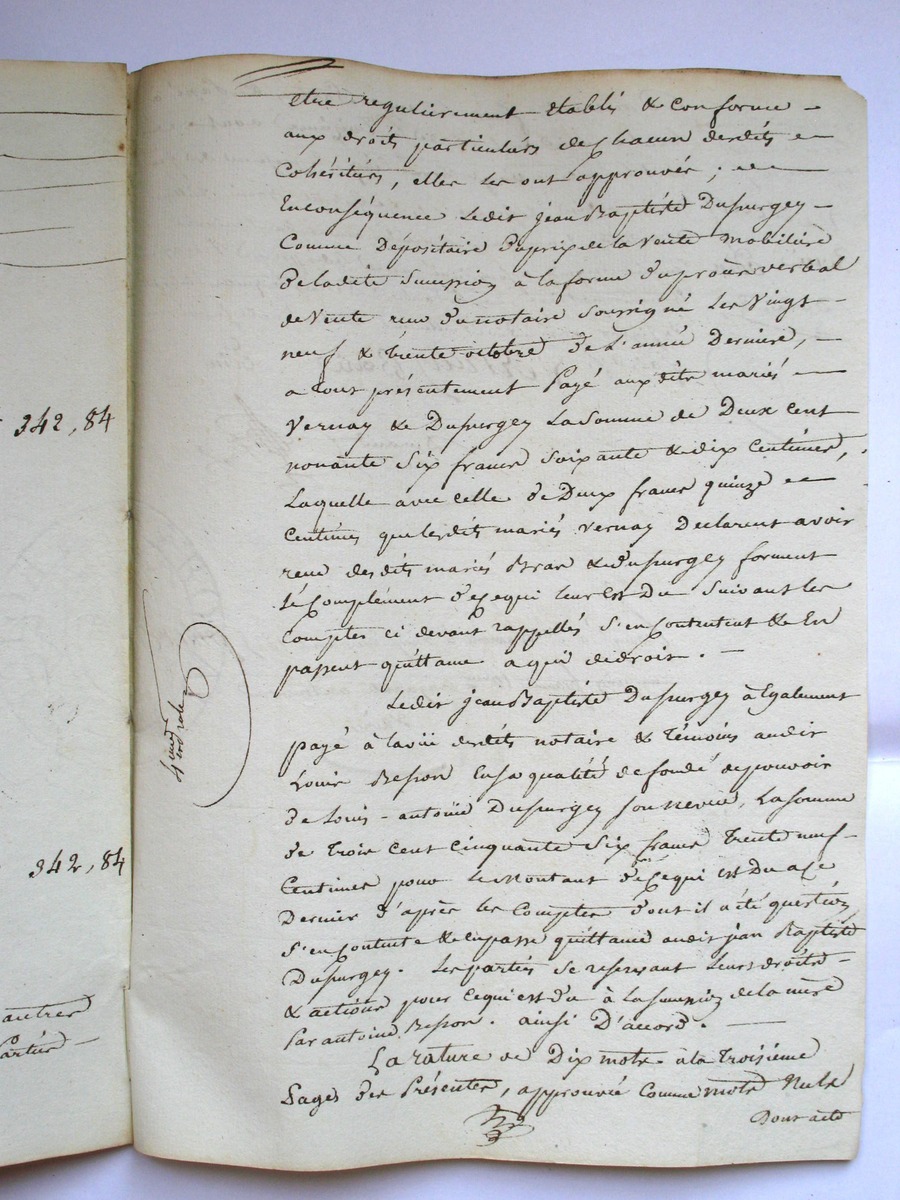 342, 84
342, 84
autres
Partie —
4me et der Rôle
être regulierement établis & conforme —
aux droits particuliers de Chacun desdits —
Cohéritiers, elles les ont approuvés ; —
En conséquence Ledit jean Baptiste Dupurgey —
Comme Dépositaire du prix de la Vente Mobiliere
de ladite Succession à la forme du procès verbal
de Vente reçu du notaire soussigné Les Vingt —
neuf & trente octobre de L'année Derniere, —
a tout présentement Payé aux dits mariés —
Vernay & Dupurgey La Somme de Deux Cent
nonante Six francs Soixante & dix Centimes,
Laquelle avec celle de Deux francs quinze —
Centimes que lesdits mariés Vernay Déclarent avoir
reçu desdits mariés Bran & Dupurgey forment
le Complément de Ce qui leur est Du Suivant les
Comptes ci devant rappellés S'en Contentent & en
passent quittance a qui de droit. —
Ledit jean Baptiste Dupurgey à Egalement
payé à la vüe desdits notaire & Témoins audit
Louis Besson En sa qualité de fondé de pouvoir
de Louis-antoine Dupurgey son neveu, La somme
de Trois Cent Cinquante Six francs Trente neuf —
Centimes pour le Montant de Ce qui est Du a Ce
Dernier d'après les Comptes dont il a été question,
S'en Contente & en passe quittance audit jean Baptiste
Dupurgey. Les parties se reservant leurs droits —
& actions pour Ce qui est du à La Succession de la mere
Par antoine Besson. ainsi D'accord. —
La rature de Dix mots à la Troisième
Page des Présentes, approuvée Comme mots Nuls
Dont acte